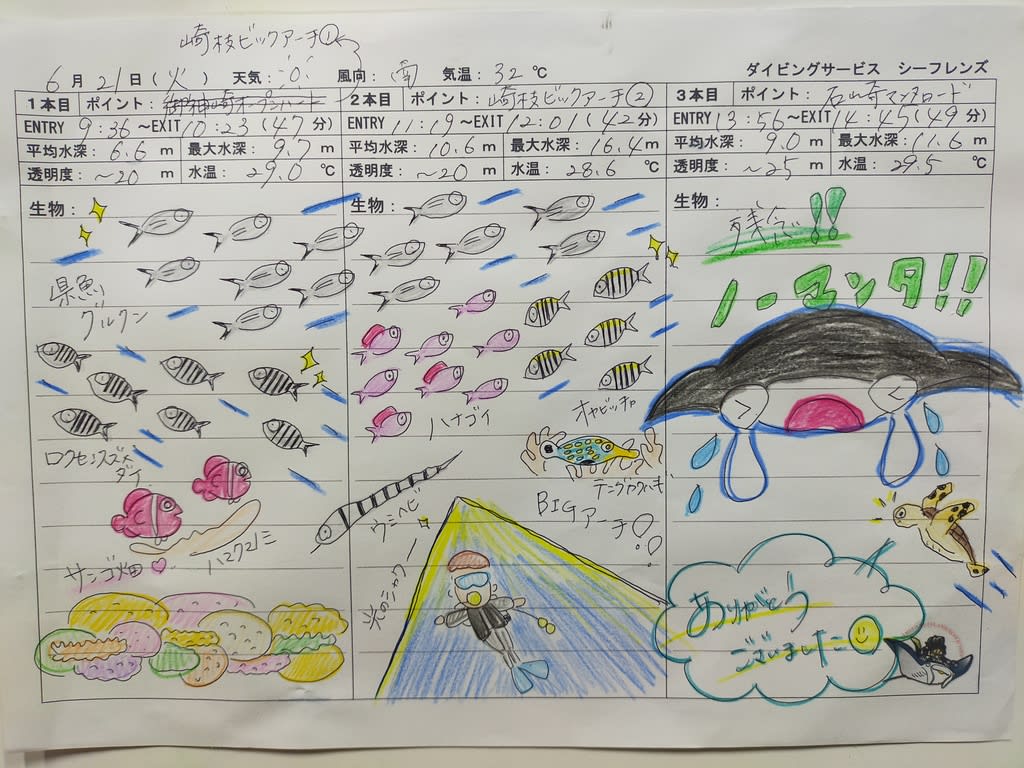 崎枝ビックアーチ①
6月21日(火) 天気: 風向: 南 気温: 32℃
ダイビングサービス シーフレンズ
1本目 ポイント: 御神崎オープンハート
ENTRY 9:36~EXIT 10:23(47分)
平均水深: 6.6m 最大水深: 9.7m
透明度: ~20m 水温: 29.0℃
生物:
県魚
グルクン
ロクセンスズメ
ダイ
ハマクマノミ
サンゴ畑♡
2本目 ポイント: 崎枝ビックアーチ②
ENTRY 11:19~EXIT 12:01(42分)
平均水深: 10.6m 最大水深: 16.4m
透明度: ~20m 水温: 28.6℃
生物:
ハナゴイ
オヤビッチャ
テングカワハギ
ウミヘビ
BIG
アーチ
光のシャワー
3本目 ポイント: 石崎マンタロード
ENTRY 13:56~EXIT 14:45(49分)
平均水深: 9.0m 最大水深: 11.6m
透明度: ~25m 水温: 29.5℃
生物:
残念!!
ノーマンタ!!
ありがとう
ございました